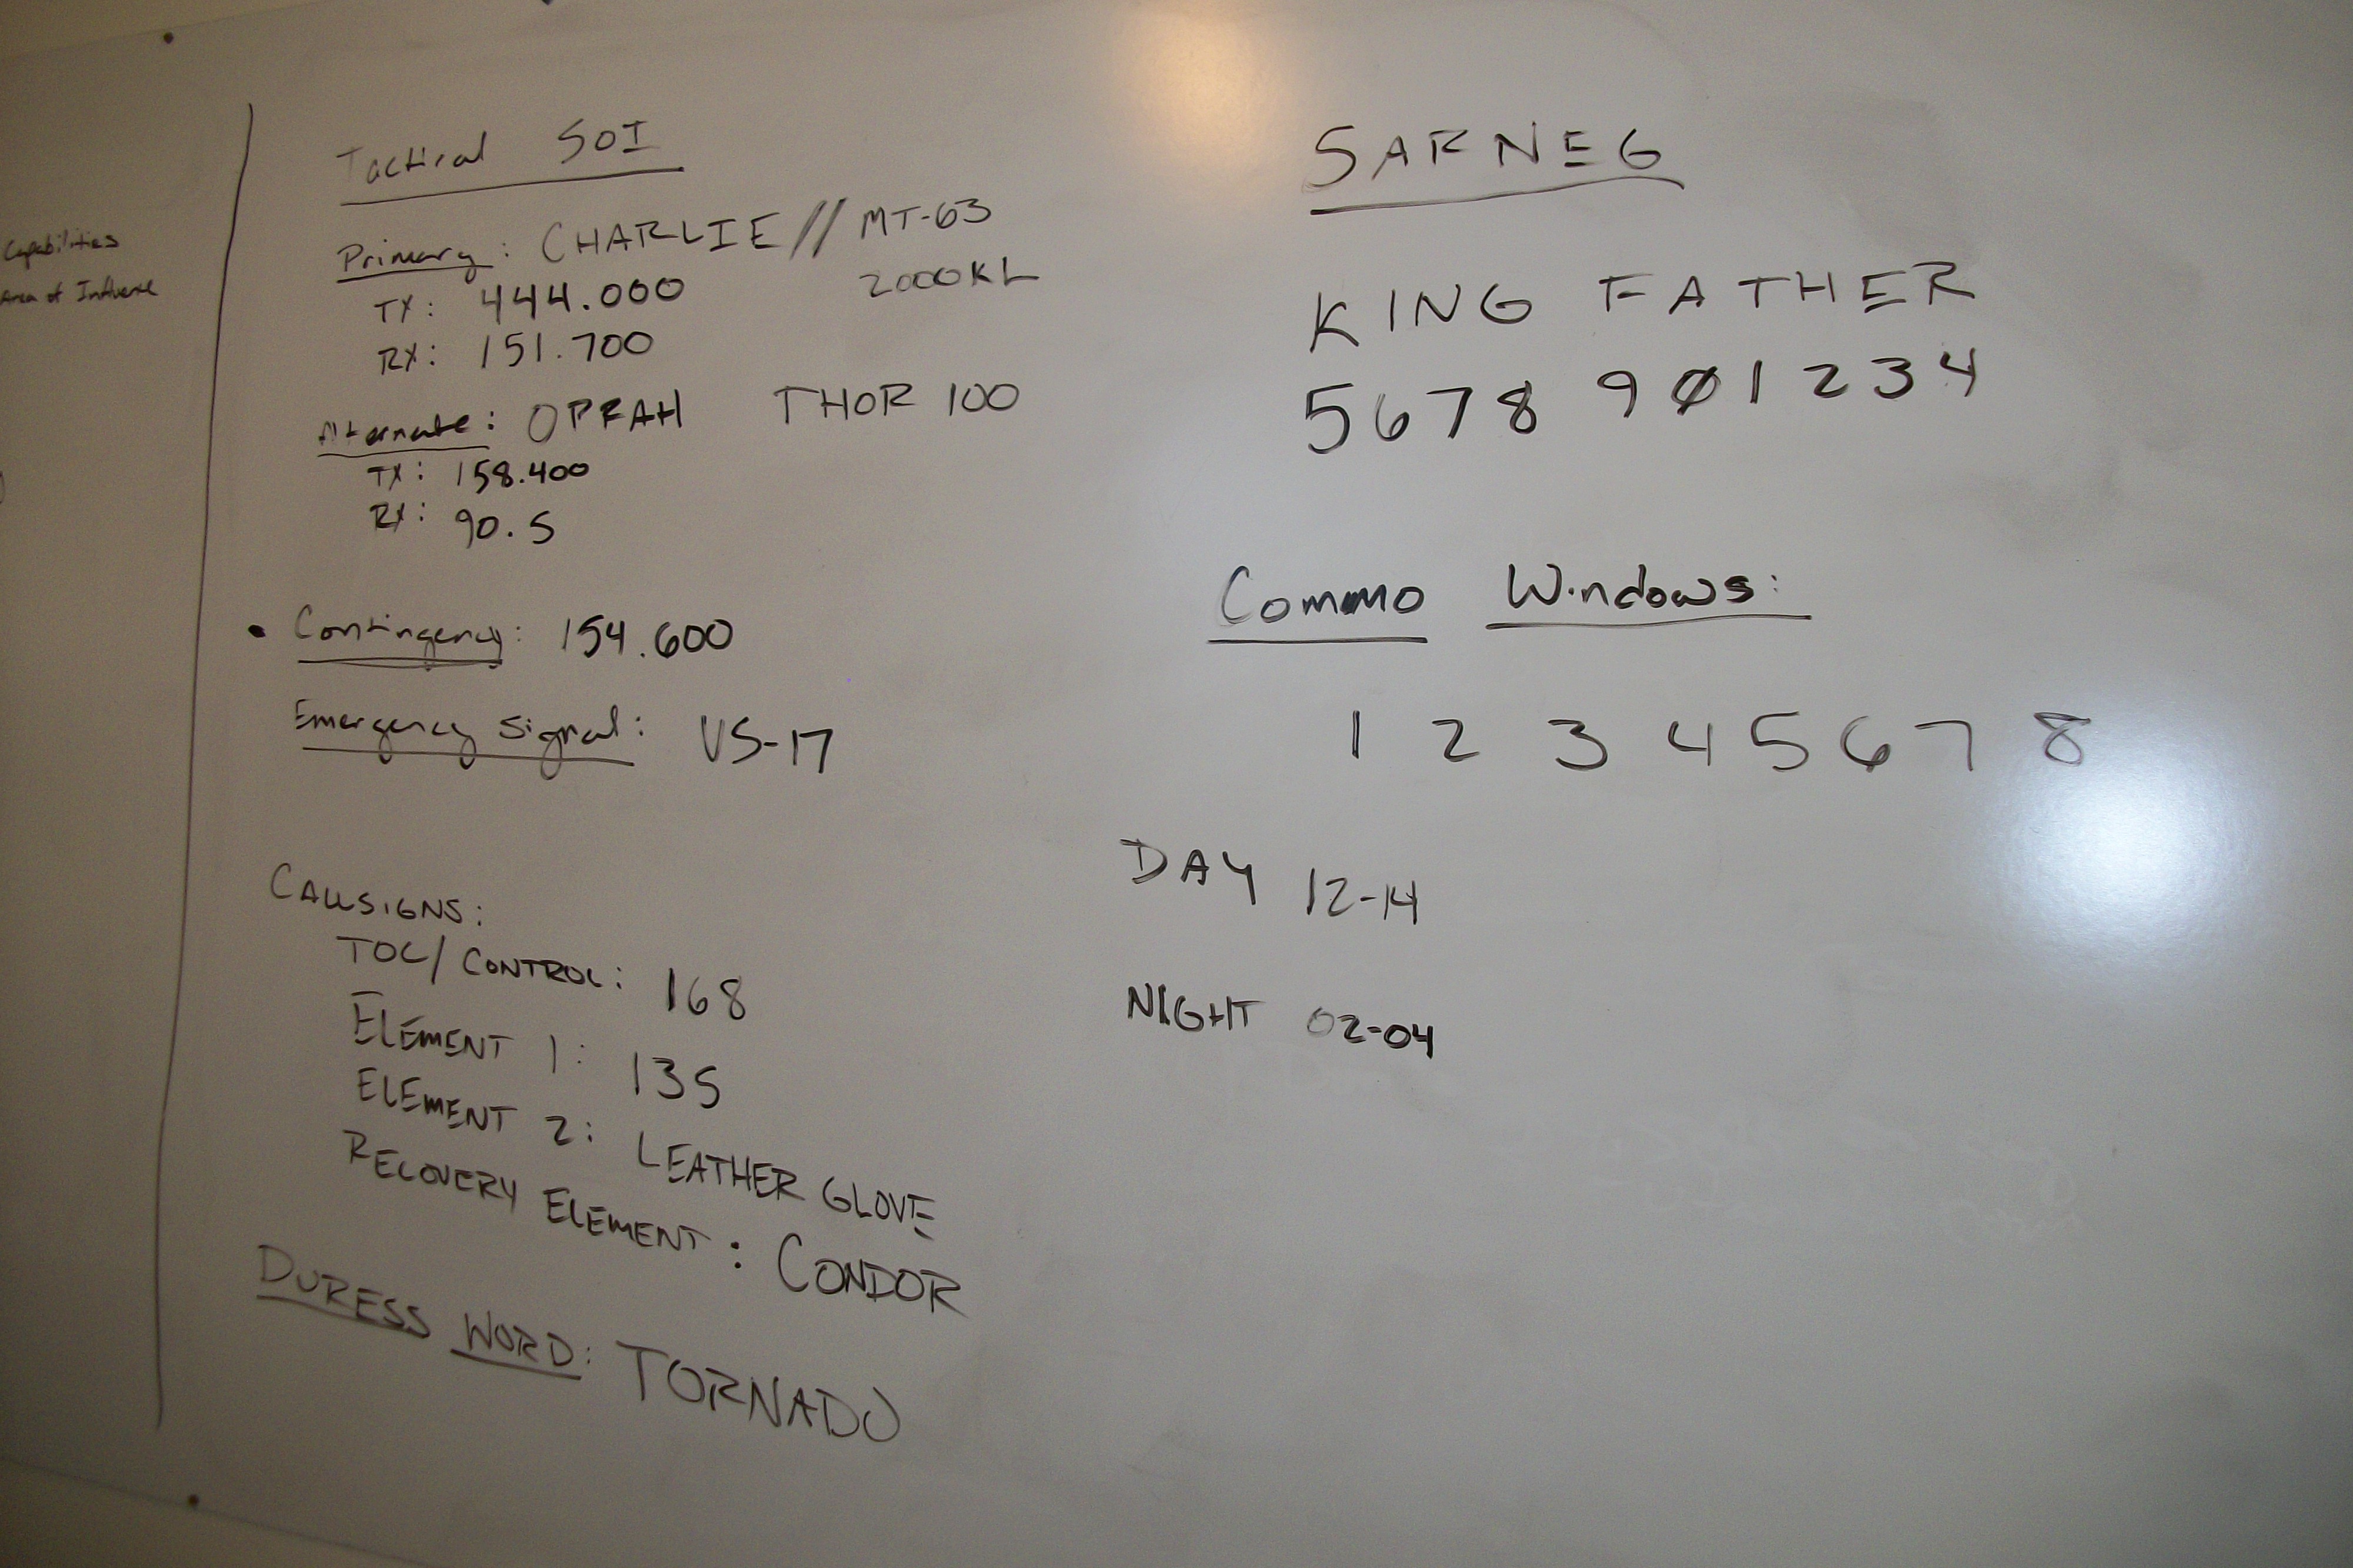 Capabilities
Area of Influence
Tactical SOI
Primary: CHARLIE // MT-63
2000KL
TX: 444.000
RX: 151.700
Alternate: OPRAH THOR 100
TX: 158.400
RX: 90.5
• Contingency: 154.600
Emergency Signal: VS-17
CALLSIGNS:
TOC/CONTROL: 168
ELEMENT 1: 135
ELEMENT 2: LEATHER GLOVE
RECOVERY ELEMENT: CONDOR
DURESS WORD: TORNADO
SARNEG
KING FATHER
5678 9Ø1234
Commo Windows:
1 2 3 4 5 6 7 8
DAY 12-14
NIGHT 02-04